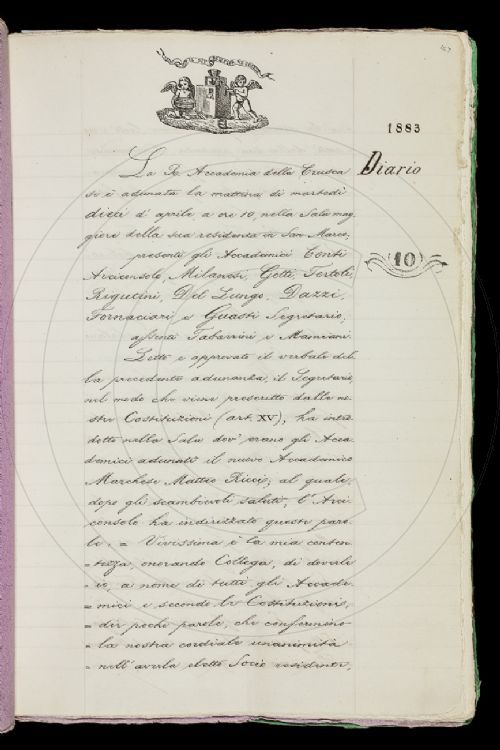 147
1883
Diario
La R. Accademia della Crusca
si è adunata la mattina di martedì
dieci d'aprile a ore 10, nella Sala mag
giore della sua residenza in San Marco;
presenti gli Accademici Conti
Arciconsolo, Milanesi, Gotti, Tortoli,
Rigutini, Del Lungo, Dazzi,
Fornaciari e Guasti Segretario;
assenti Tabarrini e Mamiani.
(10)
Letto e approvato il verbale del
la precedente adunanza, il Segretario,
nel modo che viene prescritto dalle no
stre Costituzioni (art. XV), ha intro
dotto nella Sala dov'erano gli Acca
demici adunati il nuovo Accademico
Marchese Matteo Ricci; al quale,
dopo gli scambievoli saluti, l'Arci
consolo ha indirizzato queste paro
le: = Vivissima è la mia conten
= tezza, onorando Collega, di doverle
= io, a nome di tutti gli Accade
= mici e secondo le Costituzioni,
= dir poche parole, che confermino
= la nostra cordiale unanimità
= nell'averla eletto Socio residente,